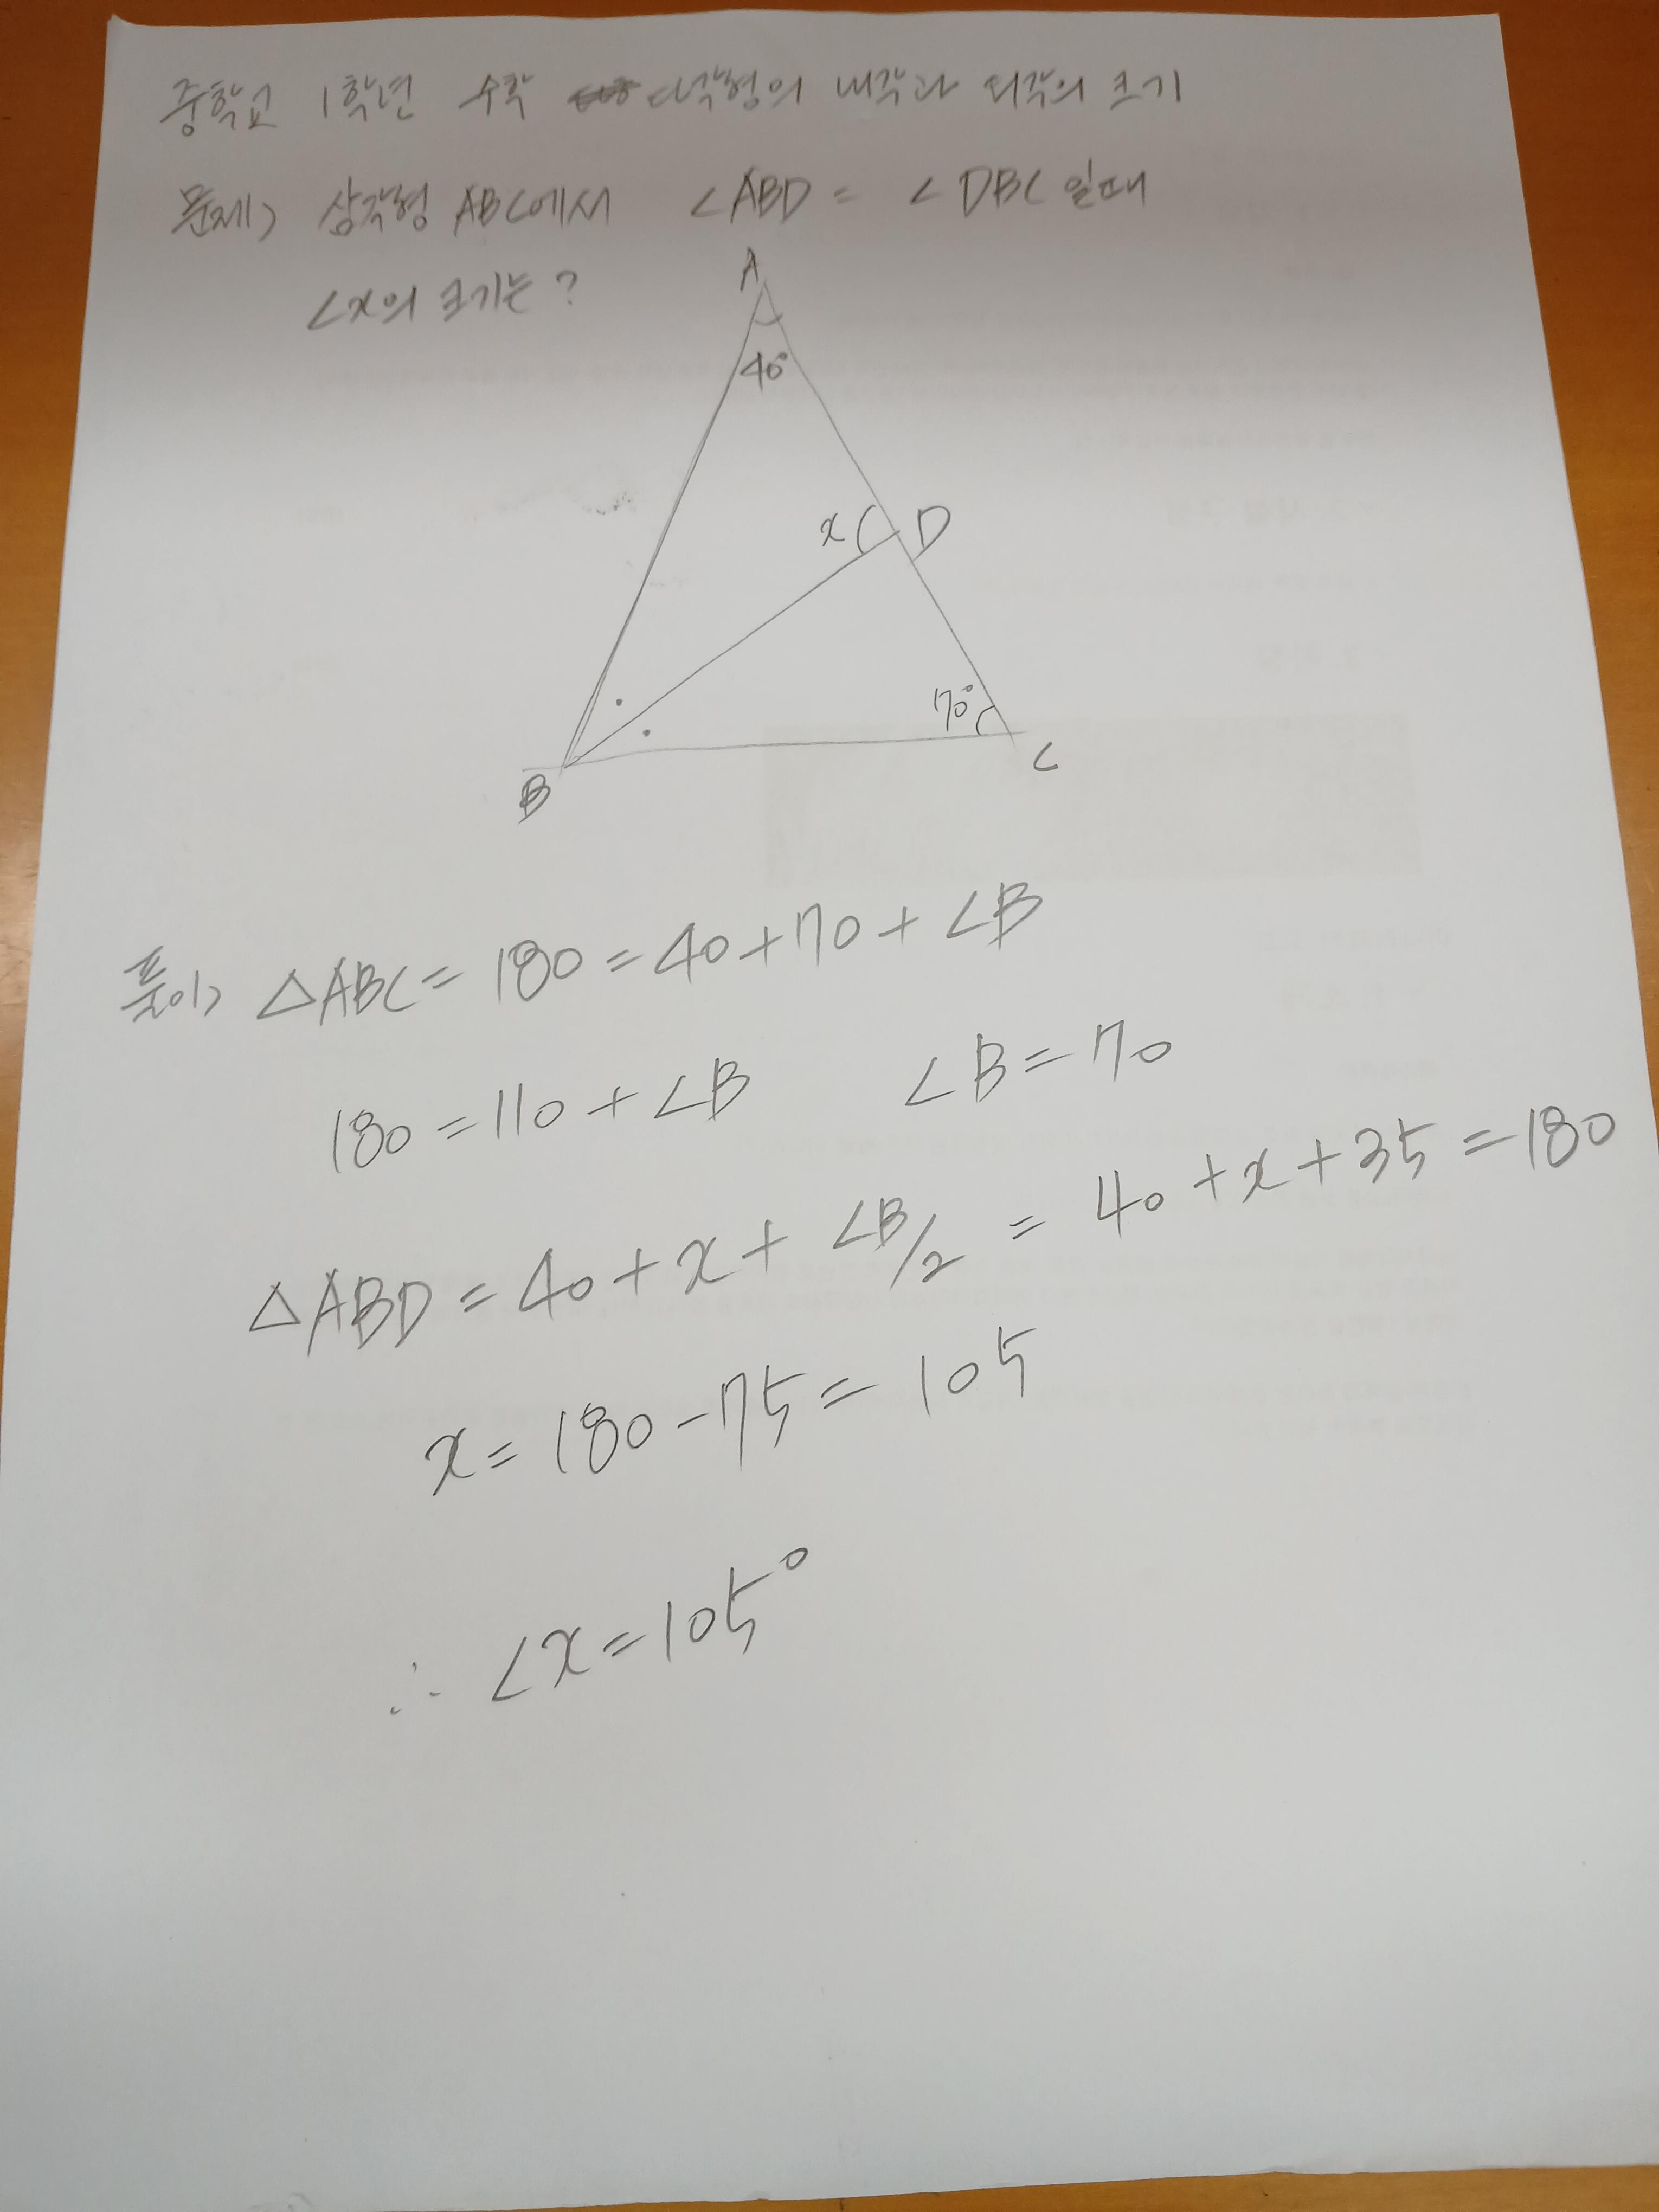 중학교 1학년 수학 다각형의 내각과 외각의 크기
문제) 삼각형 ABC에서 ∠ABD = ∠DBC일때
∠x의 크기는?
A
40°
x
D
70°
B
C
풀이) △ABC = 180 = 40 + 70 + ∠B
180 = 110 + ∠B ∠B = 70
△ABD = 40 + x + ∠B/2 = 40 + x + 35 = 180
x = 180 - 75 = 105
∴ ∠x = 105°